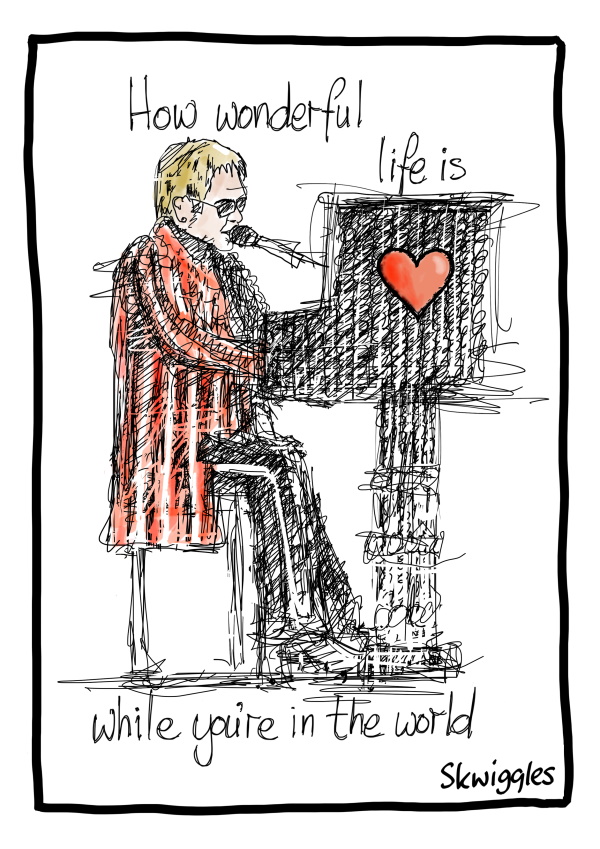 How wonderful
life is
while you're in the world
Skwiggles